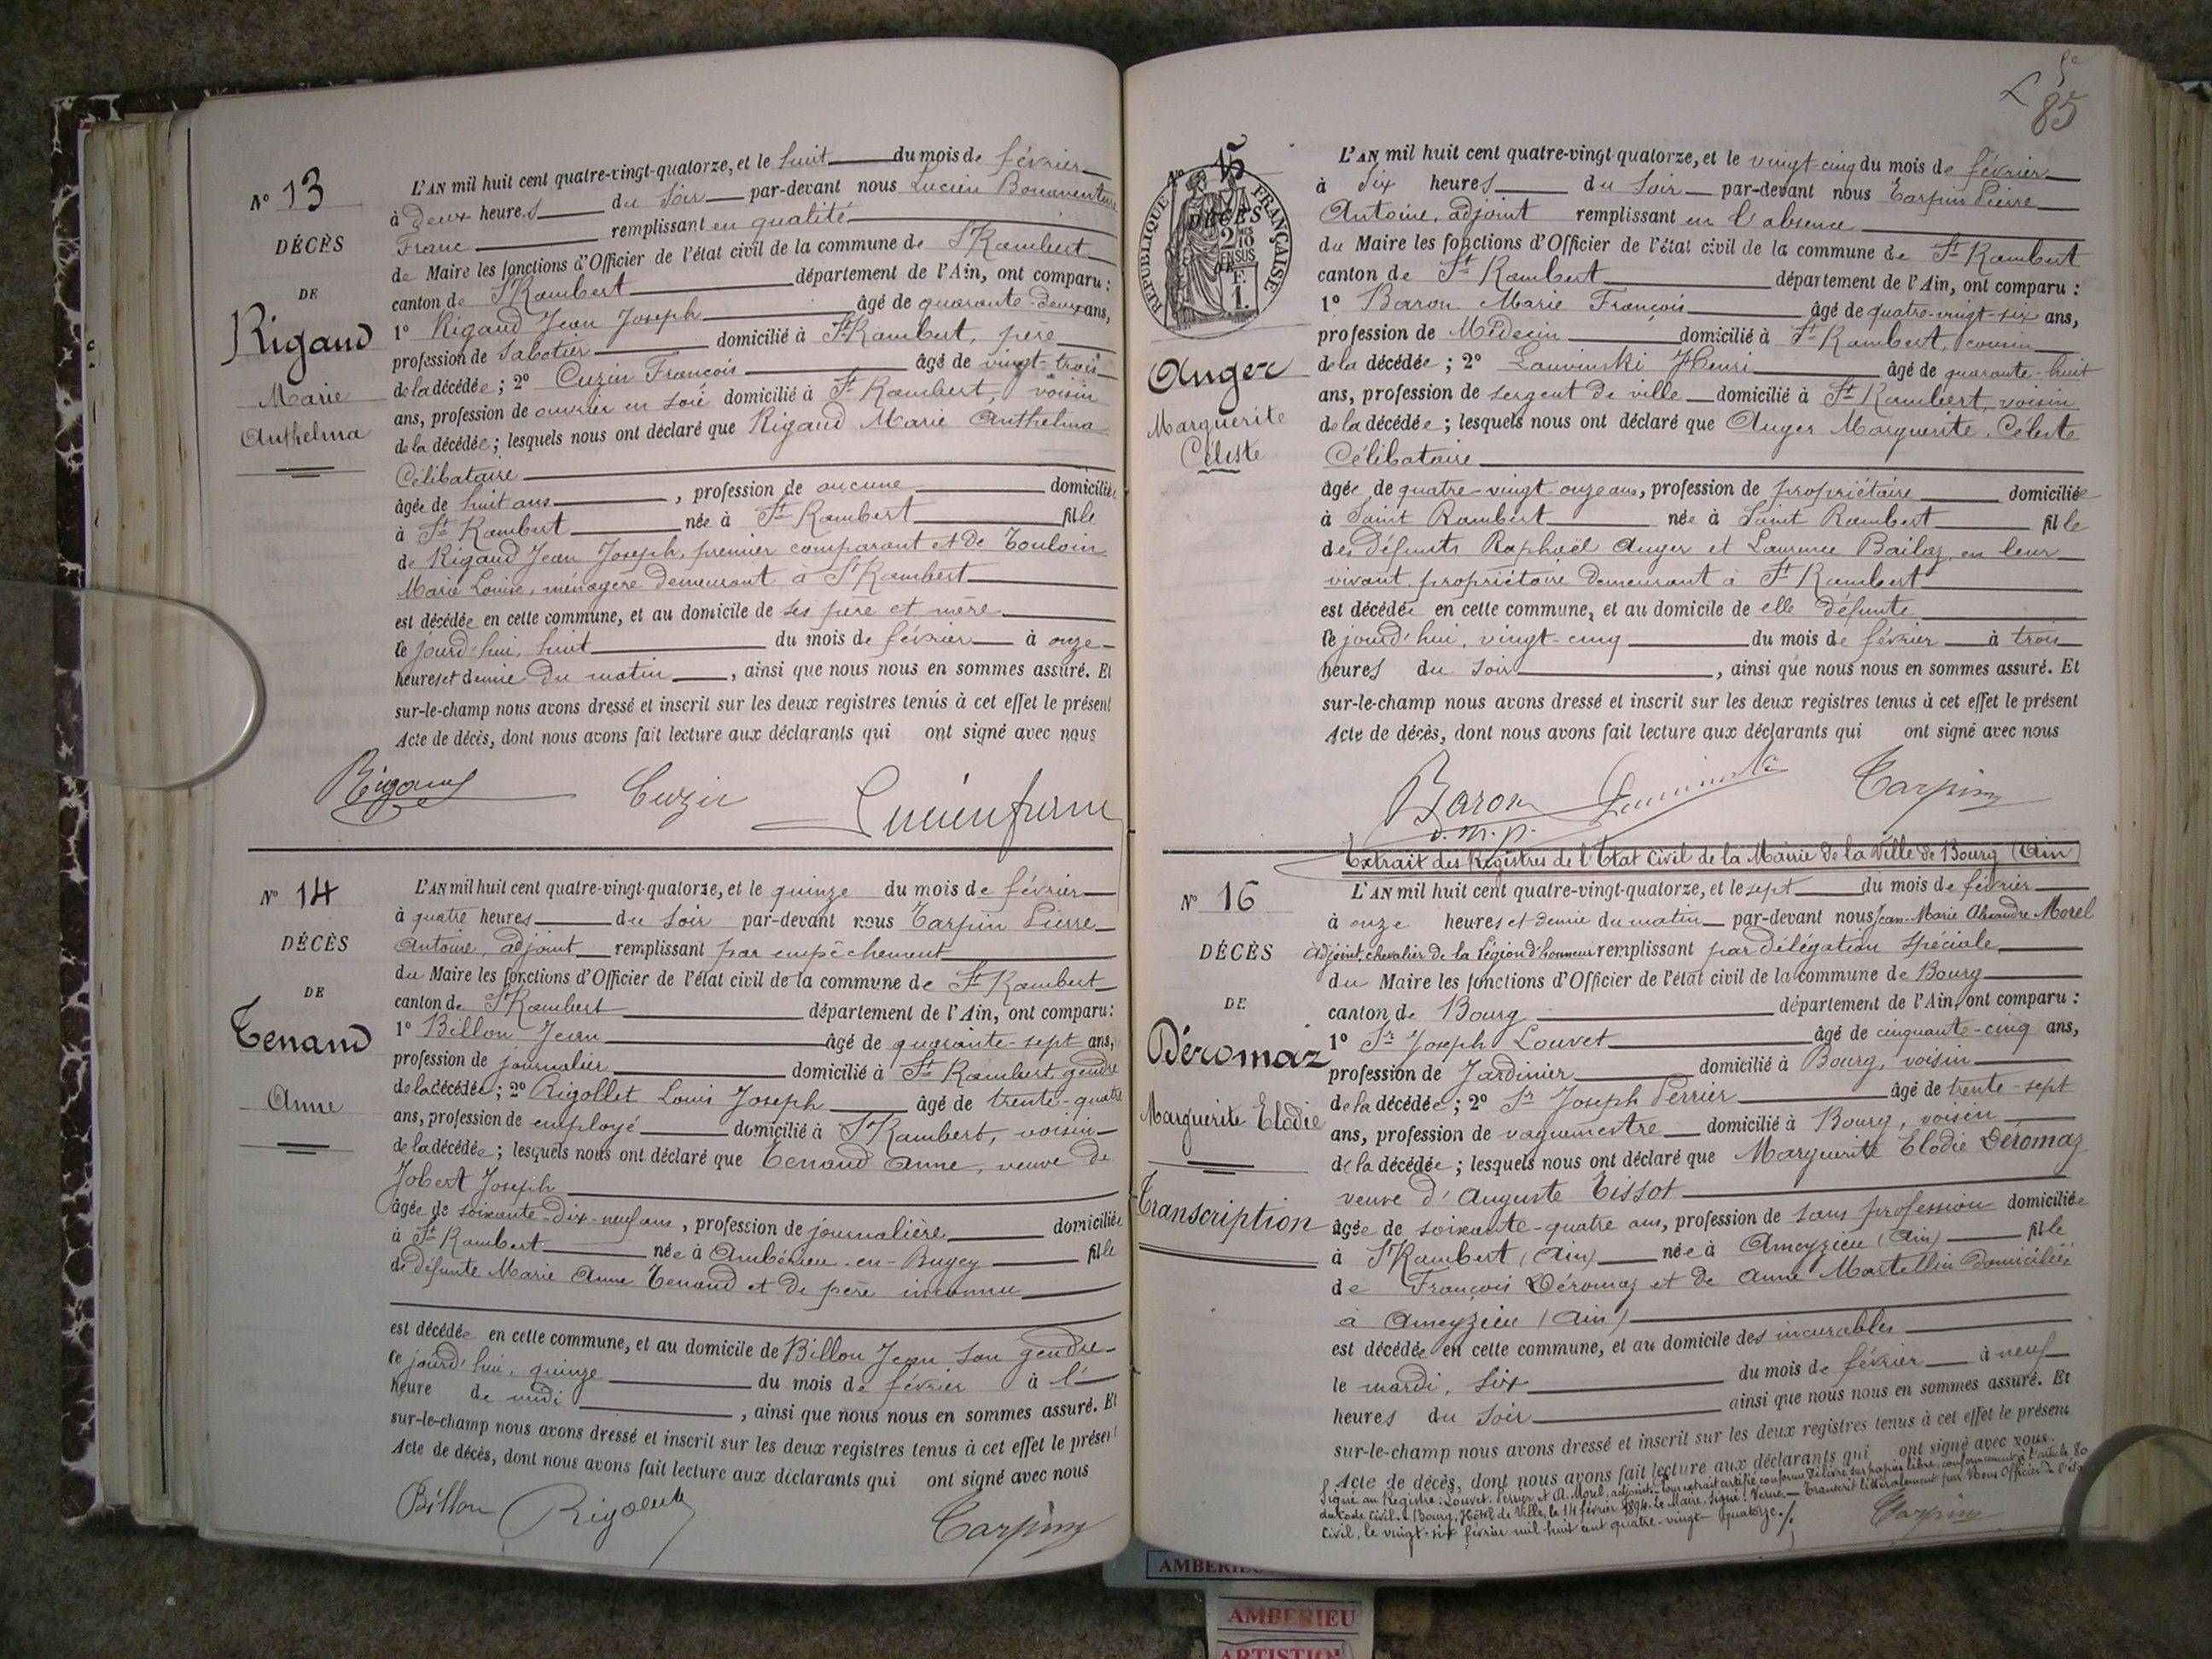 N° 13
DÉCÈS
DE
Rigaud
Marie
Anthelma
L'AN mil huit cent quatre-vingt-quatorze, et le huit du mois de février
à deux heures du soir par-devant nous Lucien Bonaventure
Franc remplissant en qualité
de Maire les fonctions d'Officier de l'état civil de la commune de St Rambert
canton de St Rambert département de l'Ain, ont comparu :
1° Rigaud Jean Joseph âgé de quarante-deux ans,
profession de sabotier domicilié à St Rambert, père
de la décédée ; 2° Cuzin François âgé de vingt-trois
ans, profession de ouvrier en soie domicilié à St Rambert, voisin
de la décédée ; lesquels nous ont déclaré que Rigaud Marie Anthelma
Célibataire
âgée de huit ans, profession de aucune domiciliée
à St Rambert née à St Rambert fille
de Rigaud Jean Joseph, premier comparant et de Touloin
Marie Louise, ménagère demeurant à St Rambert
est décédée en cette commune, et au domicile de ses père et mère
le jourd'hui, huit du mois de février à onze
heures et demie du matin, ainsi que nous nous en sommes assuré. Et
sur-le-champ nous avons dressé et inscrit sur les deux registres tenus à cet effet le présent
Acte de décès, dont nous avons fait lecture aux déclarants qui ont signé avec nous
Rigaud Cuzin Lucien franc
N° 14
DÉCÈS
DE
Tenand
Anne
L'AN mil huit cent quatre-vingt-quatorze, et le quinze du mois de février
à quatre heures du soir par-devant nous Tarpin Pierre
Antoine, adjoint remplissant par empêchement
du Maire les fonctions d'Officier de l'état civil de la commune de St Rambert
canton de St Rambert département de l'Ain, ont comparu :
1° Billon Jean âgé de quarante-sept ans,
profession de journalier domicilié à St Rambert gendre
de la décédée ; 2° Rigollet Louis Joseph âgé de trente-quatre
ans, profession de employé domicilié à St Rambert, voisin
de la décédée ; lesquels nous ont déclaré que Tenand Anne, veuve de
Jobert Joseph
âgée de soixante-dix-neuf ans, profession de journalière domiciliée
à St Rambert née à Ambérieu-en-Bugey fille
de défunte Marie Anne Tenand et de père inconnu
est décédée en cette commune, et au domicile de Billon Jean son gendre
le jourd'hui, quinze du mois de février à l'
heure de midi, ainsi que nous nous en sommes assuré. Et
sur-le-champ nous avons dressé et inscrit sur les deux registres tenus à cet effet le présent
Acte de décès, dont nous avons fait lecture aux déclarants qui ont signé avec nous
Billon Rigollet Tarpin
85
N° 15
DÉCÈS
RÉPUBLIQUE FRANÇAISE
2/10 EN SUS
F.
1.
Auger
Marguerite
Céleste
L'AN mil huit cent quatre-vingt-quatorze, et le vingt-cinq du mois de février
à six heures du soir par-devant nous Tarpin Pierre
Antoine, adjoint remplissant en l'absence
du Maire les fonctions d'Officier de l'état civil de la commune de St Rambert
canton de St Rambert département de l'Ain, ont comparu :
1° Baron Marie François âgé de quatre-vingt-six ans,
profession de Médecin domicilié à St Rambert, cousin
de la décédée ; 2° Lauvinski Henri âgé de quarante-huit
ans, profession de sergent de ville domicilié à St Rambert, voisin
de la décédée ; lesquels nous ont déclaré que Auger Marguerite, Céleste
Célibataire
âgée de quatre-vingt-onze ans, profession de propriétaire domiciliée
à Saint Rambert née à Saint Rambert fille
des défunts Raphaël Auger et Laurence Bailoz, en leur
vivant, propriétaire demeurant à St Rambert
est décédée en cette commune, et au domicile de elle défunte
le jourd'hui, vingt-cinq du mois de février à trois
heures du soir, ainsi que nous nous en sommes assuré. Et
sur-le-champ nous avons dressé et inscrit sur les deux registres tenus à cet effet le présent
Acte de décès, dont nous avons fait lecture aux déclarants qui ont signé avec nous
Baron d.m.p. Tarpin
Extrait des Registres de l'Etat Civil de la Mairie de la Ville de Bourg (Ain)
N° 16
DÉCÈS
DE
Déromaz
Marguerite Elodie
Transcription
L'AN mil huit cent quatre-vingt-quatorze, et le sept du mois de février
à onze heures et demie du matin par-devant nous Jean-Marie Alexandre Morel
Adjoint, chevalier de la Légion d'honneur remplissant par délégation spéciale
du Maire les fonctions d'Officier de l'état civil de la commune de Bourg
canton de Bourg département de l'Ain, ont comparu :
1° Sr Joseph Louvet âgé de cinquante-cinq ans,
profession de Jardinier domicilié à Bourg, voisin
de la décédée ; 2° Sr Joseph Perrier âgé de trente-sept
ans, profession de vaguemestre domicilié à Bourg, voisin
de la décédée ; lesquels nous ont déclaré que Marguerite Elodie Déromaz
veuve d'Auguste Tissot
âgée de soixante-quatre ans, profession de sans profession domiciliée
à St Rambert (Ain) née à Ameyzieu (Ain) fille
de François Déromaz et de Anne Martellin domiciliés
à Ameyzieu (Ain)
est décédée en cette commune, et au domicile des incurables
le mardi, six du mois de février à neuf
heures du soir ainsi que nous nous en sommes assuré. Et
sur-le-champ nous avons dressé et inscrit sur les deux registres tenus à cet effet le présent
Acte de décès, dont nous avons fait lecture aux déclarants qui ont signé avec nous.
Signé au Registre : Louvet, Perrier et A. Morel, adjoint. Pour extrait certifié conforme délivré sur papier libre, conformément à l'article 80
du Code Civil. à Bourg, Hôtel de Ville, le 14 février 1894. Le Maire, Signé : Verne. Transcrit littéralement par Nous Officier de l'état
Civil, le vingt-six février mil huit cent quatre-vingt-quatorze./. Tarpin
AMBERIEU
AMBERIEU